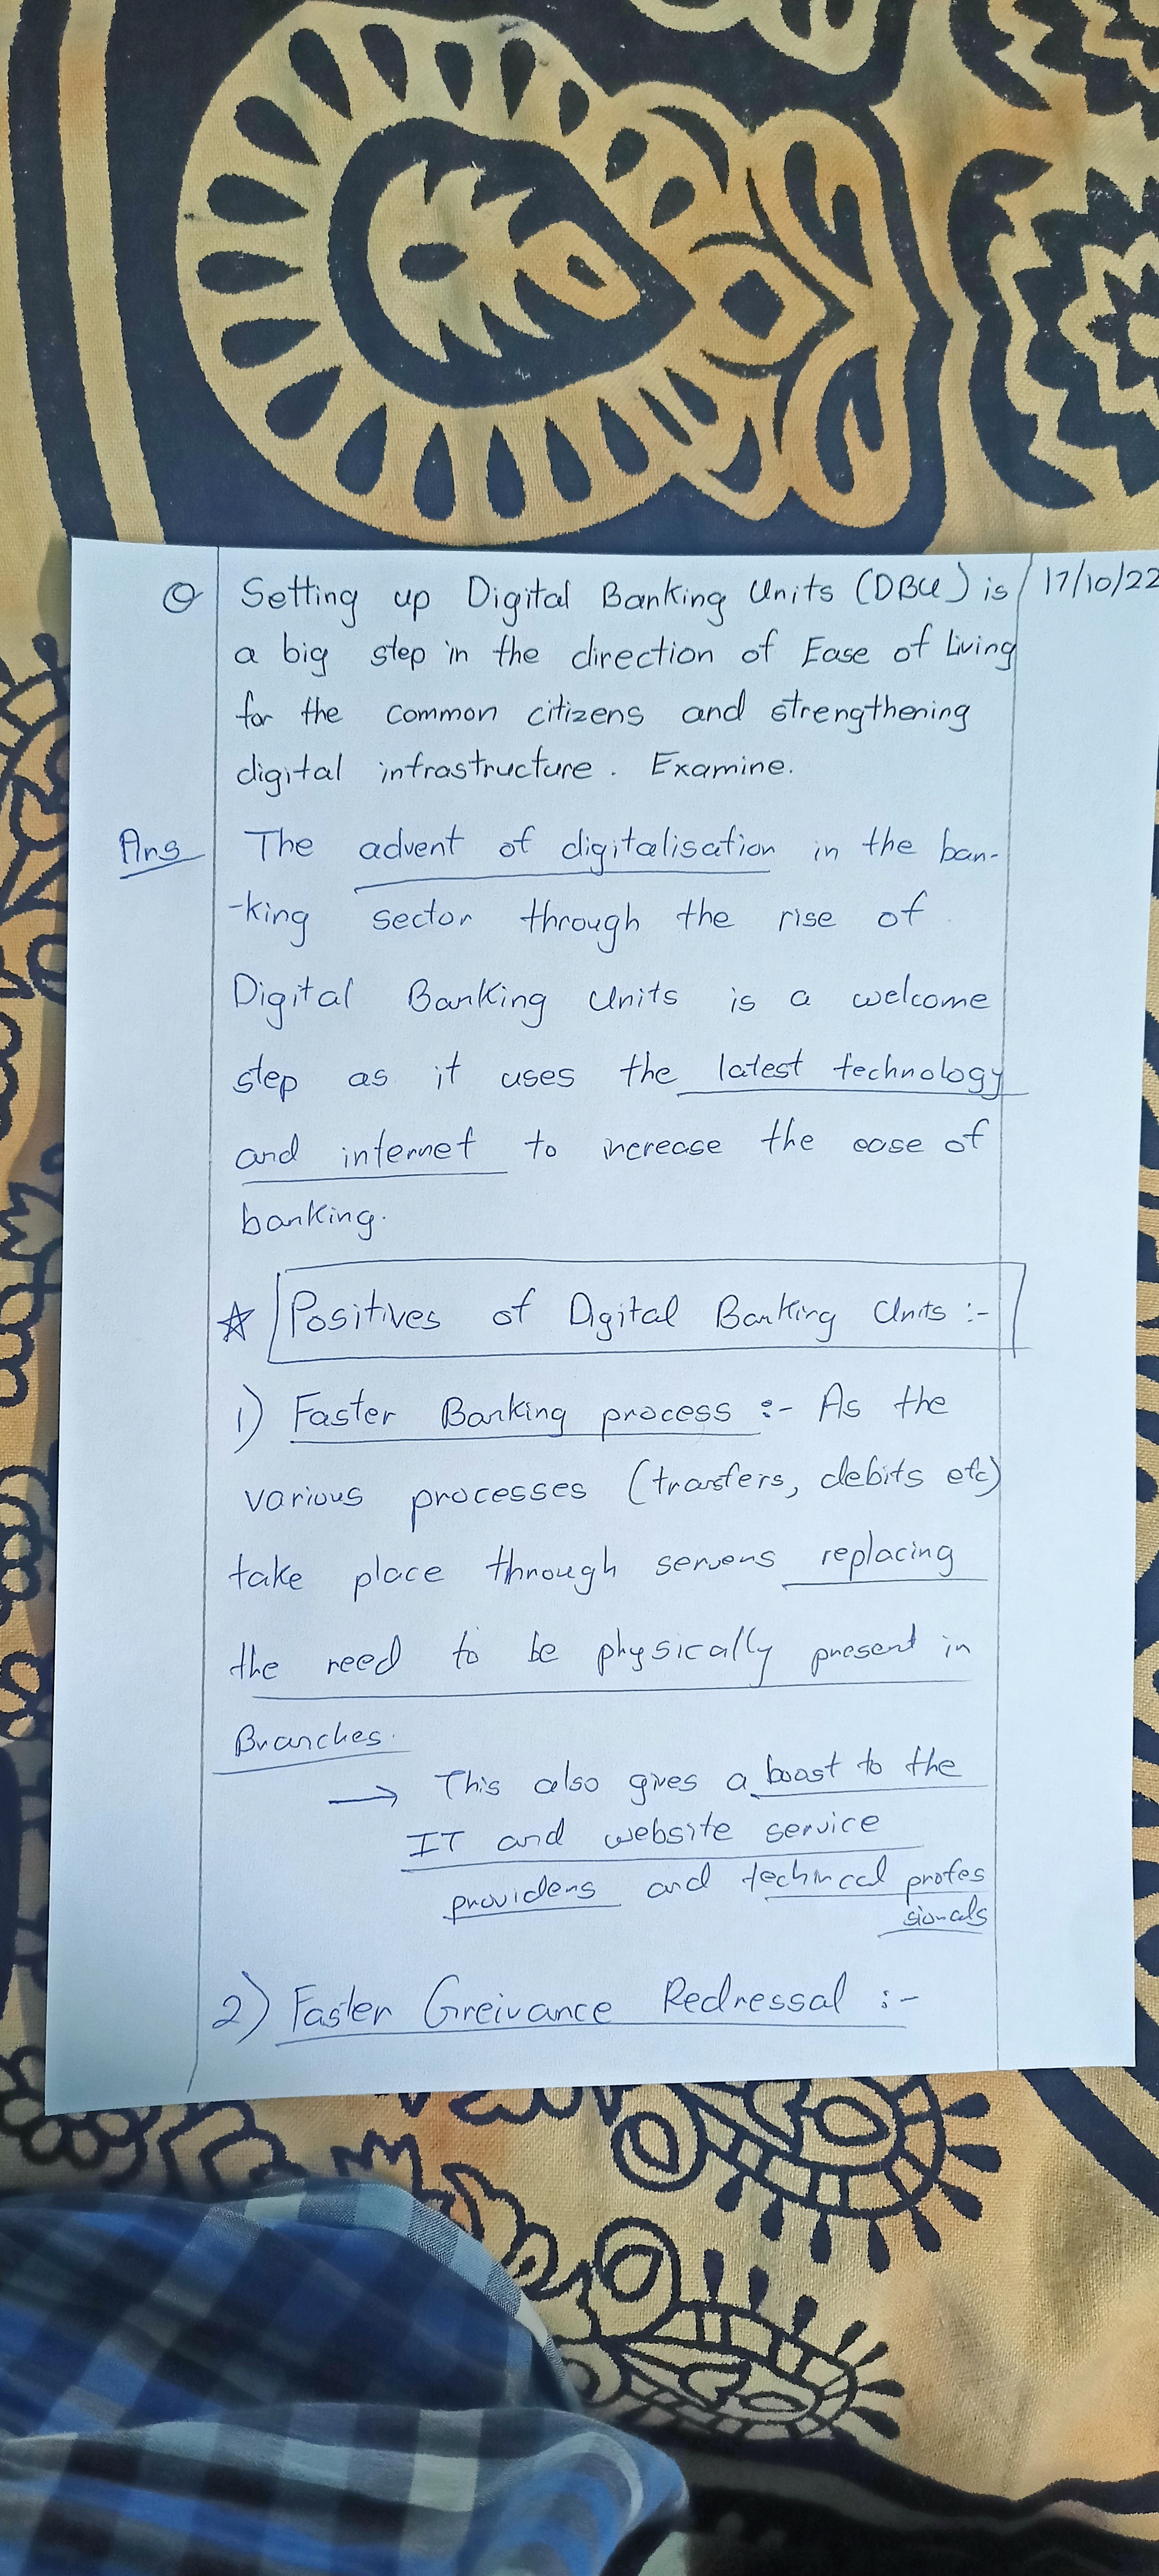 Q Setting up Digital Banking Units (DBU) is 17/10/22
a big step in the direction of Ease of Living
for the common citizens and strengthening
digital infrastructure. Examine.
Ans The advent of digitalisation in the ban-
-king sector through the rise of
Digital Banking Units is a welcome
step as it uses the latest technology
and internet to increase the ease of
banking.
☆ Positives of Digital Banking Units :-
1) Faster Banking process :- As the
various processes (transfers, debits etc)
take place through servers replacing
the need to be physically present in
Branches.
→ This also gives a boost to the
IT and website service
providers and technical profes
sionals
2) Faster Greivance Redressal :-